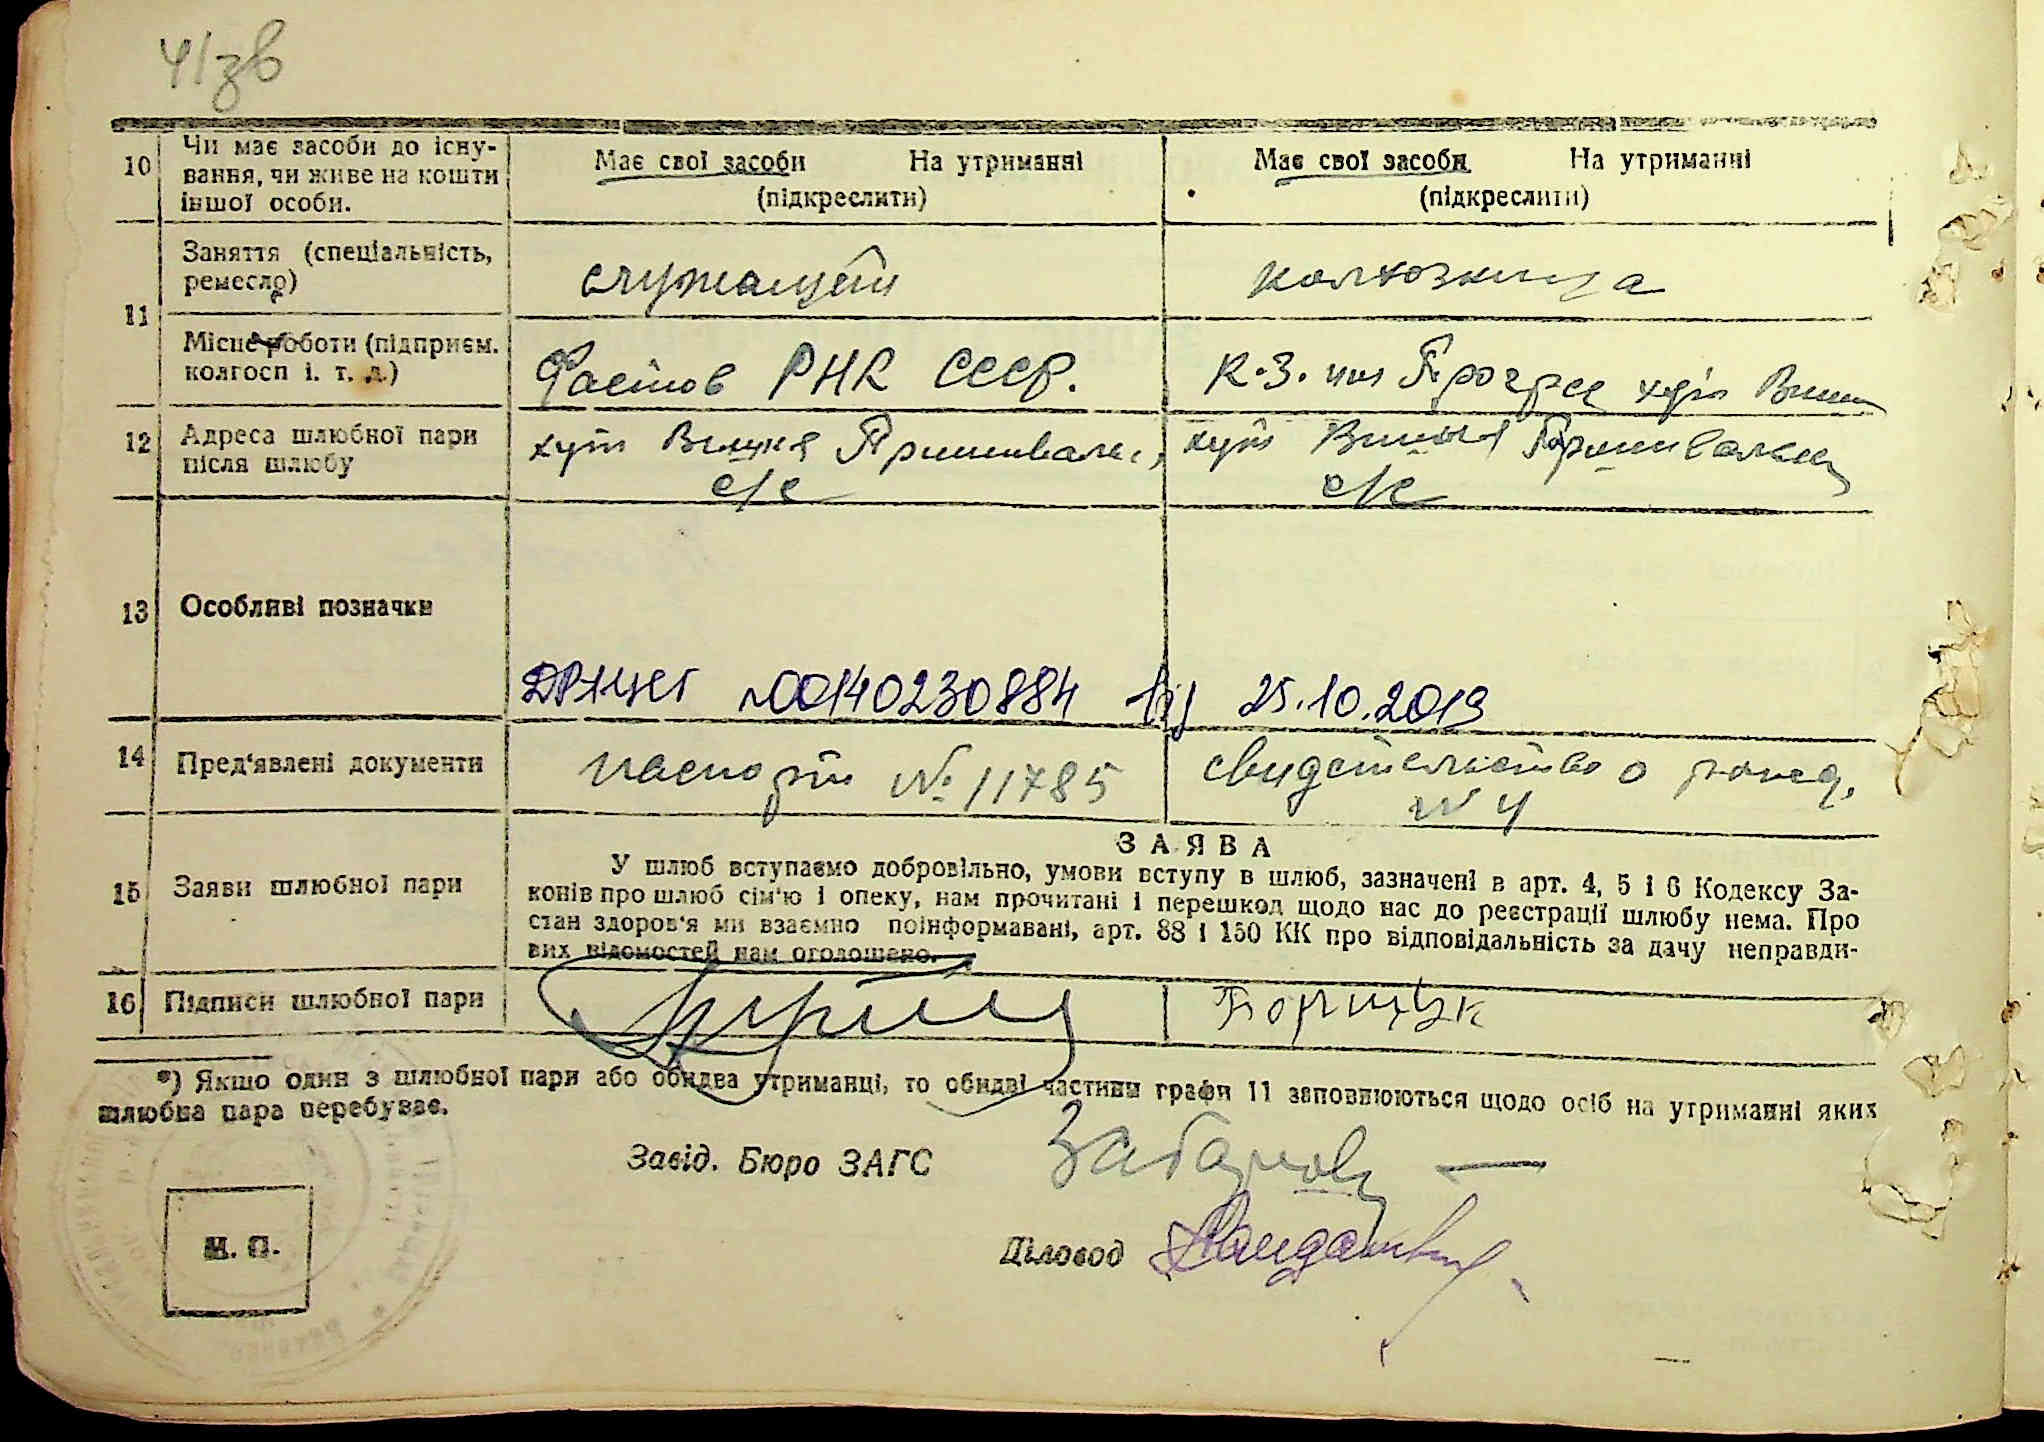 41зв
10 Чи має засоби до існу-
вання, чи живе на кошти
іншої особи.
Має свої засоби На утриманні
(підкреслити)
Має свої засоби На утриманні
(підкреслити)
11 Заняття (спеціальність,
ремесло)
служащий
колхозница
Місце роботи (підприєм.
колгосп і. т. д.)
Фастов РНК СССР.
К.З. им Прогрес хут
12 Адреса шлюбної пари
після шлюбу
хут
с/с
хут
с/с
13 Особливі позначки
ДРАЦСГ №00140230884 від 25.10.2019
14 Пред'явлені документи
паспорт № 11785
свидетельство о рожд.
№ 4
15 Заяви шлюбної пари
ЗАЯВА
У шлюб вступаємо добровільно, умови вступу в шлюб, зазначені в арт. 4, 5 і 6 Кодексу За-
конів про шлюб сім'ю і опеку, нам прочитані і перешкод щодо нас до реєстрації шлюбу нема. Про
стан здоров'я ми взаємно поінформавані, арт. 88 і 150 КК про відповідальність за дачу неправди-
вих відомостей нам оголошено.
16 Підписи шлюбної пари
*) Якшо один з шлюбної пари або обидва утриманці, то обидві частини графи 11 заповнюються щодо осіб на утриманні яких
шлюбна пара перебуває.
Завід. Бюро ЗАГС
Діловод
М. П.